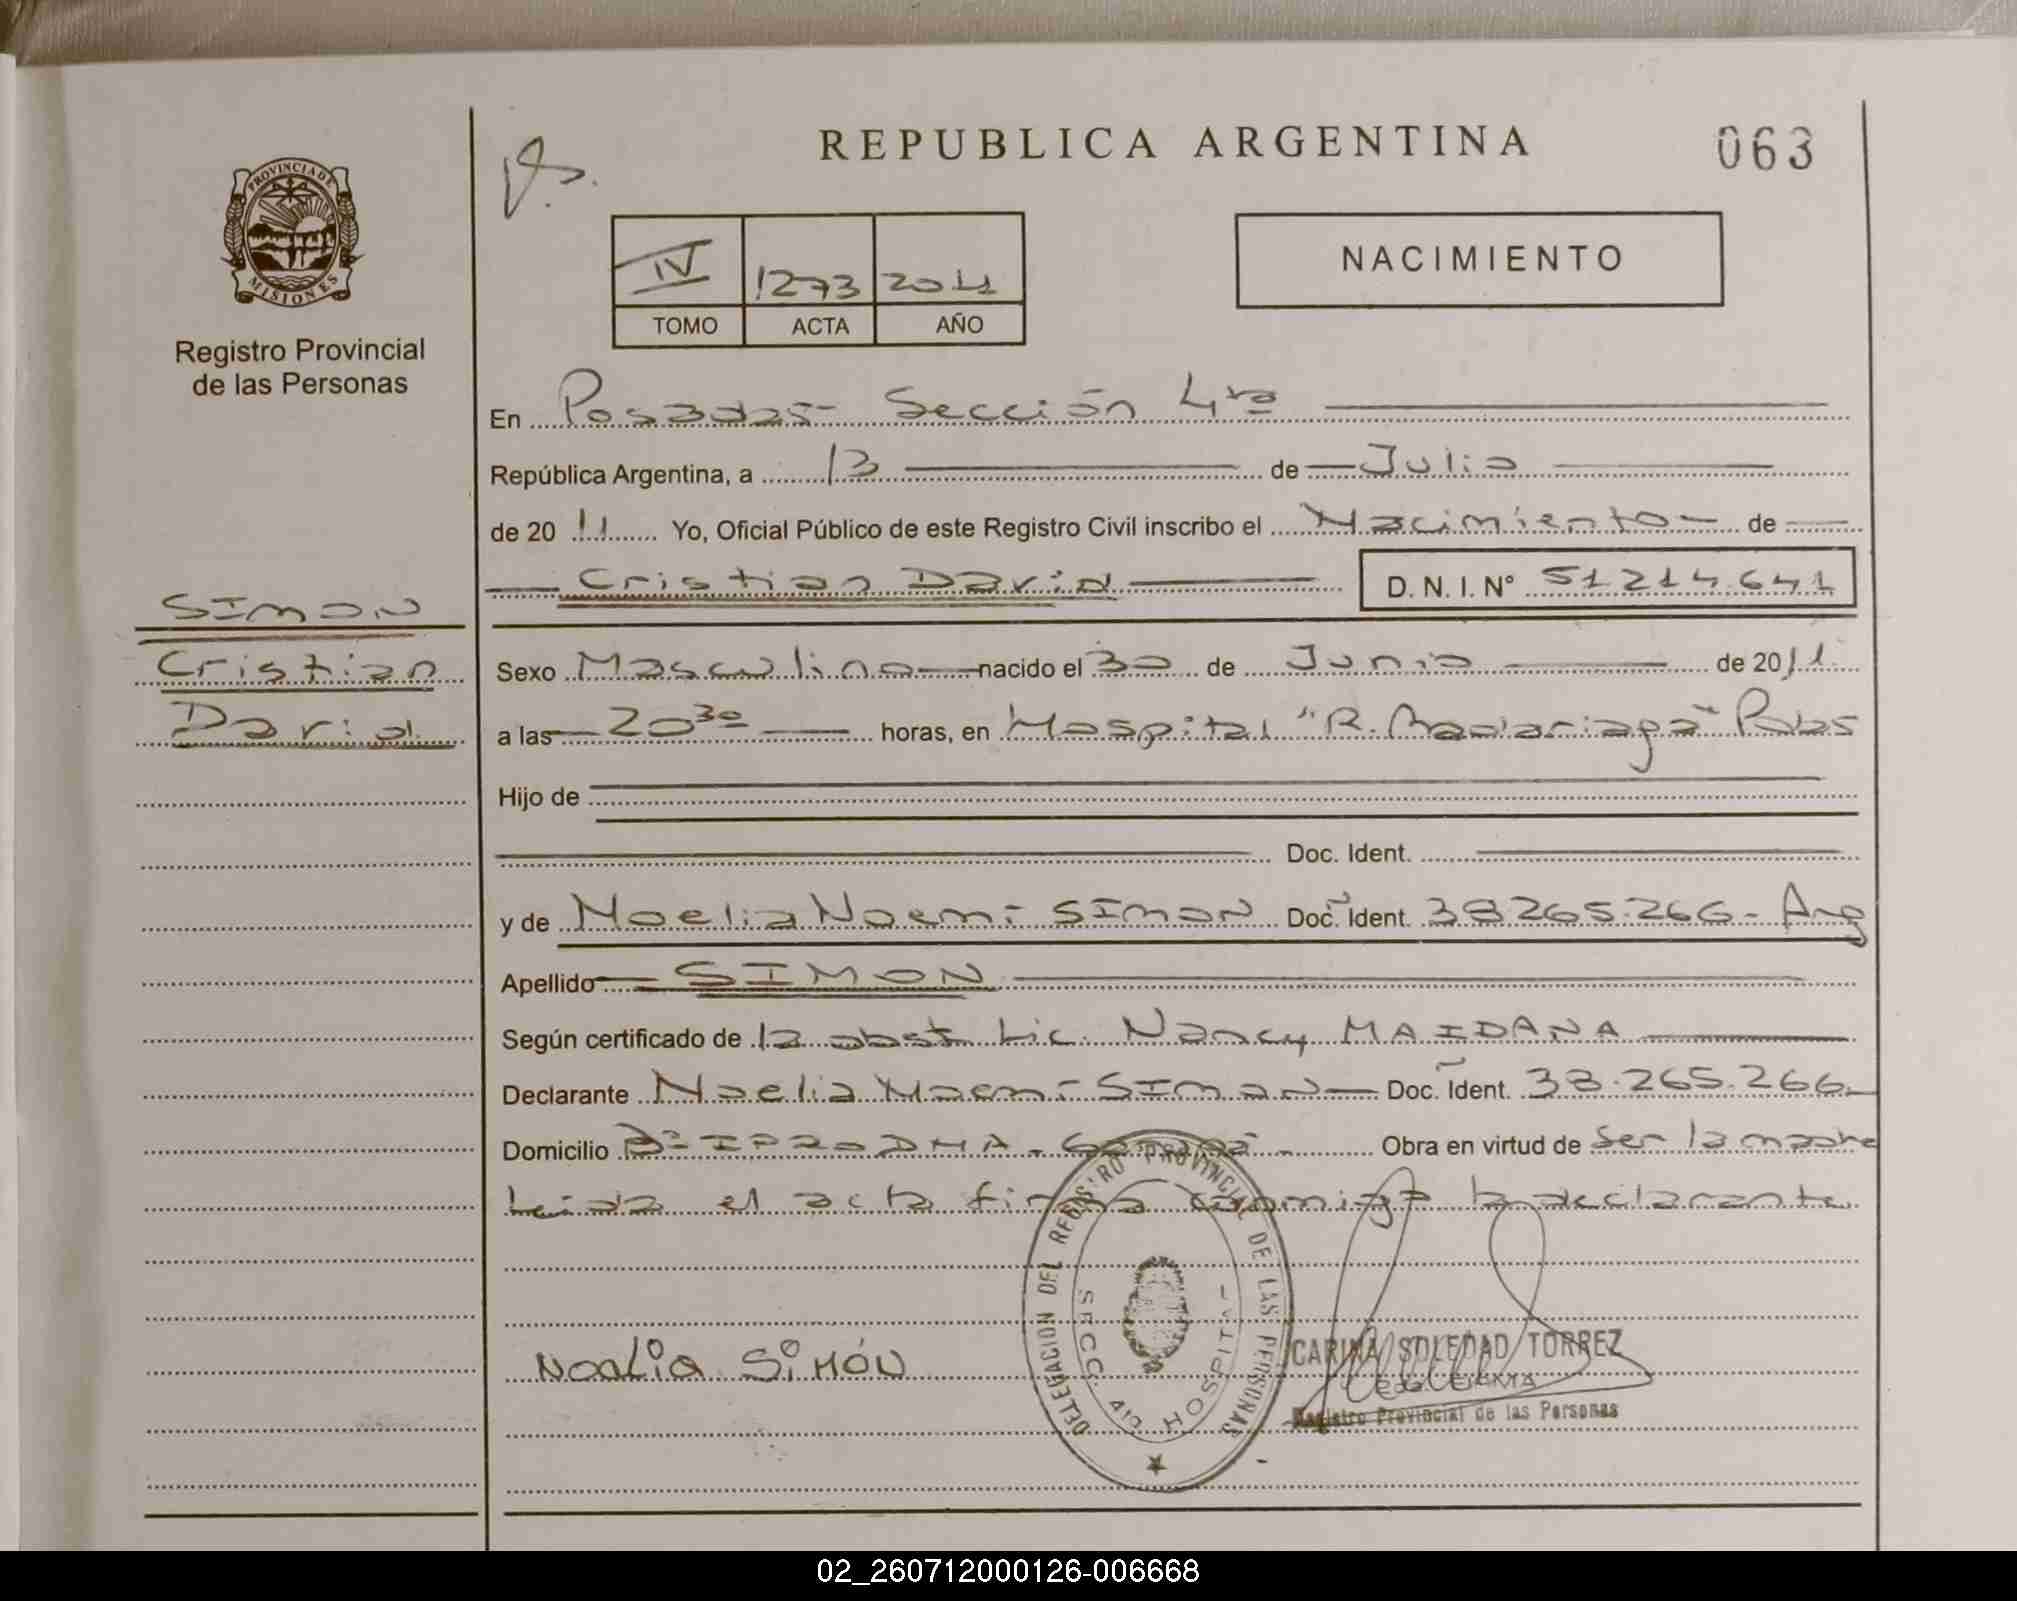 REPUBLICA ARGENTINA
063
PROVINCIA DE MISIONES
Registro Provincial
de las Personas
IV 1273 2011
TOMO ACTA AÑO
NACIMIENTO
En Posadas - Sección 4ta
República Argentina, a 13 de Julio
de 20 11 Yo, Oficial Público de este Registro Civil inscribo el Nacimiento de
Cristian David D. N. I. N° 51214.641
SIMON
Cristian
David
Sexo Masculino nacido el 30 de Junio de 2011
a las 20 30 horas, en Hospital "R. Madariaga" Pdas
Hijo de
Doc. Ident.
y de Noelia Noemi SIMON Doc. Ident. 38.265.266 - Arg
Apellido SIMON
Según certificado de la obst. Lic. Nancy MAIDANA
Declarante Noelia Noemi SIMON Doc. Ident. 38.265.266
Domicilio B° IPRODHA - Garupá - Obra en virtud de ser la madre
Leida el acta firma conmigo la declarante.
NOELIA SIMÓN
DELEGACION DEL REGISTRO PROVINCIAL DE LAS PERSONAS
SECC. 4ta HOSPITAL
CARINA SOLEDAD TORREZ
Registro Provincial de las Personas
02_260712000126-006668